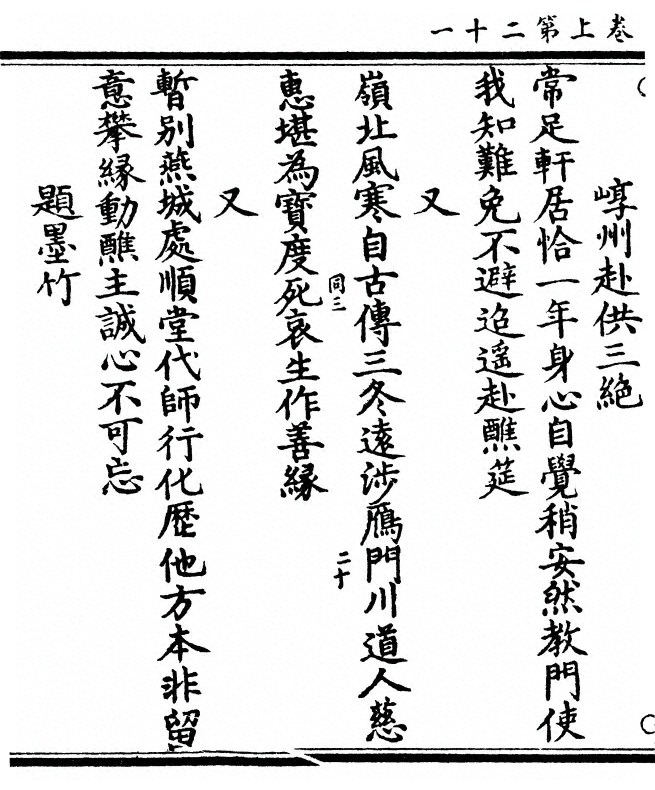 卷上第二十一
崞州赴供三絕
常足軒居恰一年身心自覺稍安然教門使
我知難免不避迢遥赴醮筵
又
嶺北風寒自古傳三冬遠涉鴈門川道人慈
同三
二十
惠堪為寶度死哀生作善縁
又
暫别燕城處順堂代師行化歷他方本非留
意攀縁動醮主誠心不可忘
題墨竹